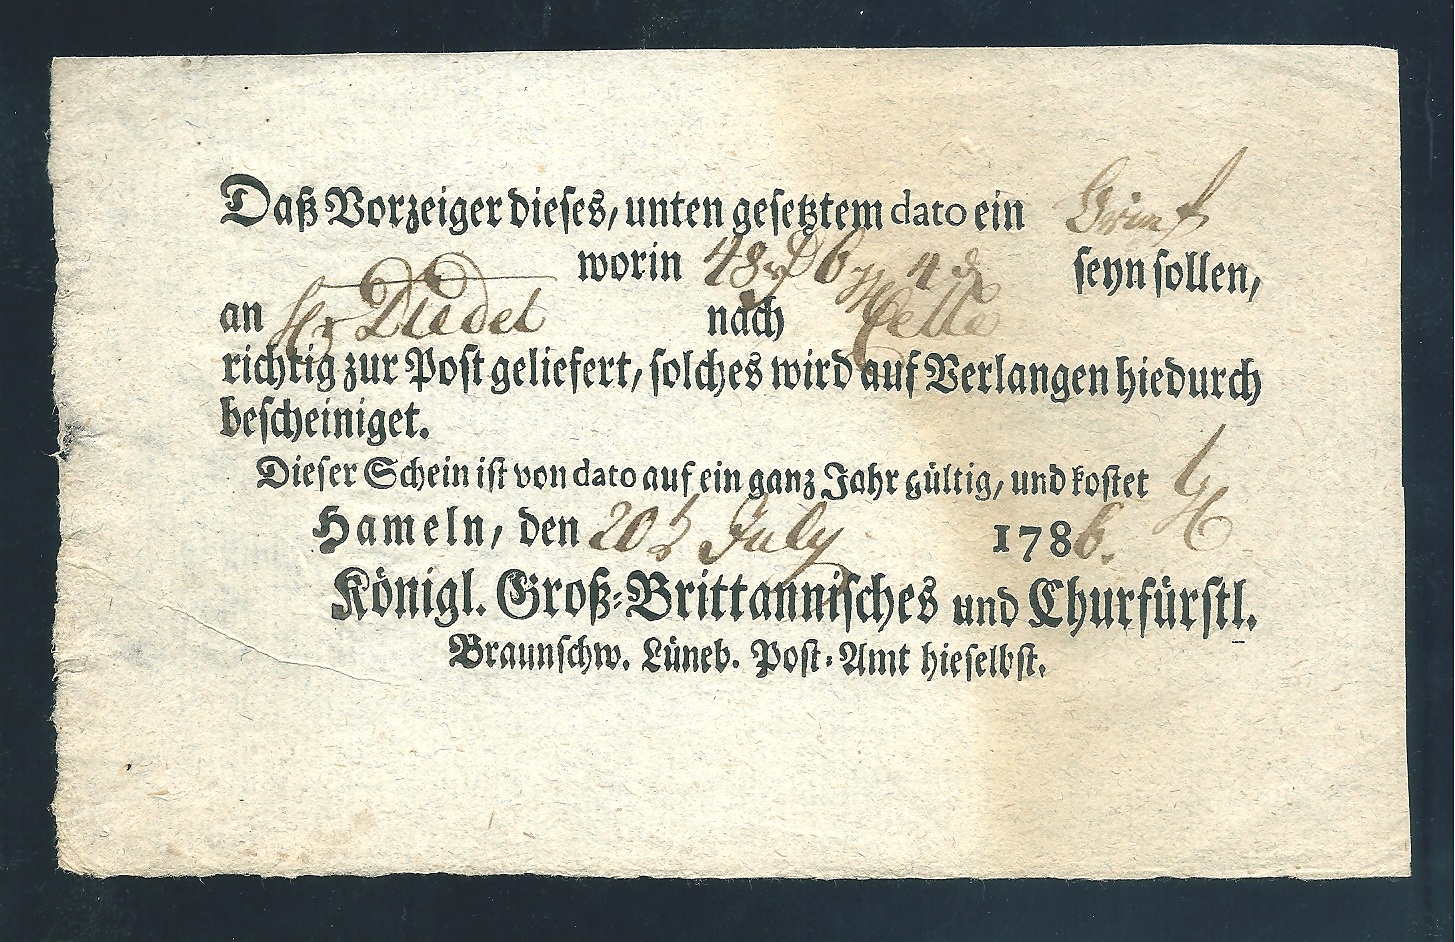 Daß Vorzeiger dieses, unten gesetztem dato ein
worin 48 6 4 seyn sollen,
an Hr Diedel nach Celle
richtig zur Post geliefert, solches wird auf Verlangen hiedurch
bescheiniget.
Dieser Schein ist von dato auf ein ganz Jahr gültig, und kostet
Hameln, den 20t July 1786.
Königl. Groß-Brittannisches und Churfürstl.
Braunschw. Lüneb. Post-Amt hieselbst.